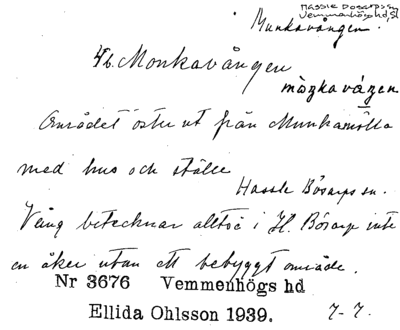 Hassle Bösarps sn
Vemmenhögs hd, Sk
Munkavången.
Hb. Monkavången
Området öster ut från Munkamölla
med hus och ställe
Hassle Bösarps sn.
Vång betecknar alltså i H. Bösarp inte
en åker utan ett bebyggt område.
Nr 3676 Vemmenhögs hd
Ellida Ohlsson 1939.
7-7.